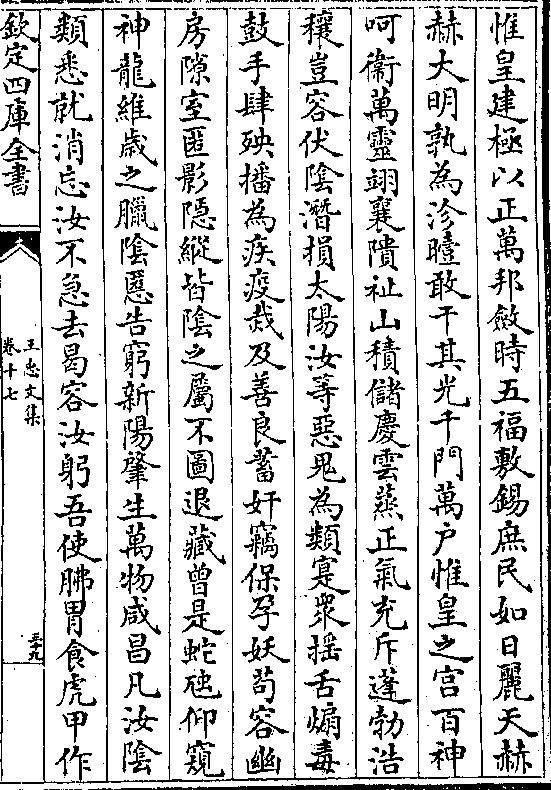 惟皇建極以正萬邦斂時五福敷錫庶民如日麗天赫
赫大明孰為沴曀敢干其光千門萬户惟皇之宫百神
呵衞萬靈翊襄隤祉山積儲慶雲蒸正氣充斥蓬勃浩
穰豈容伏陰潛損太陽汝等惡鬼為類寔衆摇舌煽毒
鼓手肆殃播為疾疫烖及善良蓄奸竊保孕妖苟容幽
房隙室匿影隠縱皆陰之屬不圖退藏曾是蛇虺仰窺
神龍維歳之臘陰慝告窮新陽肇生萬物咸昌凡汝陰
類悉就消忘汝不急去曷容汝躬吾使胇胃食虎甲作
欽定四庫全書
王忠文集
卷十七
三十九